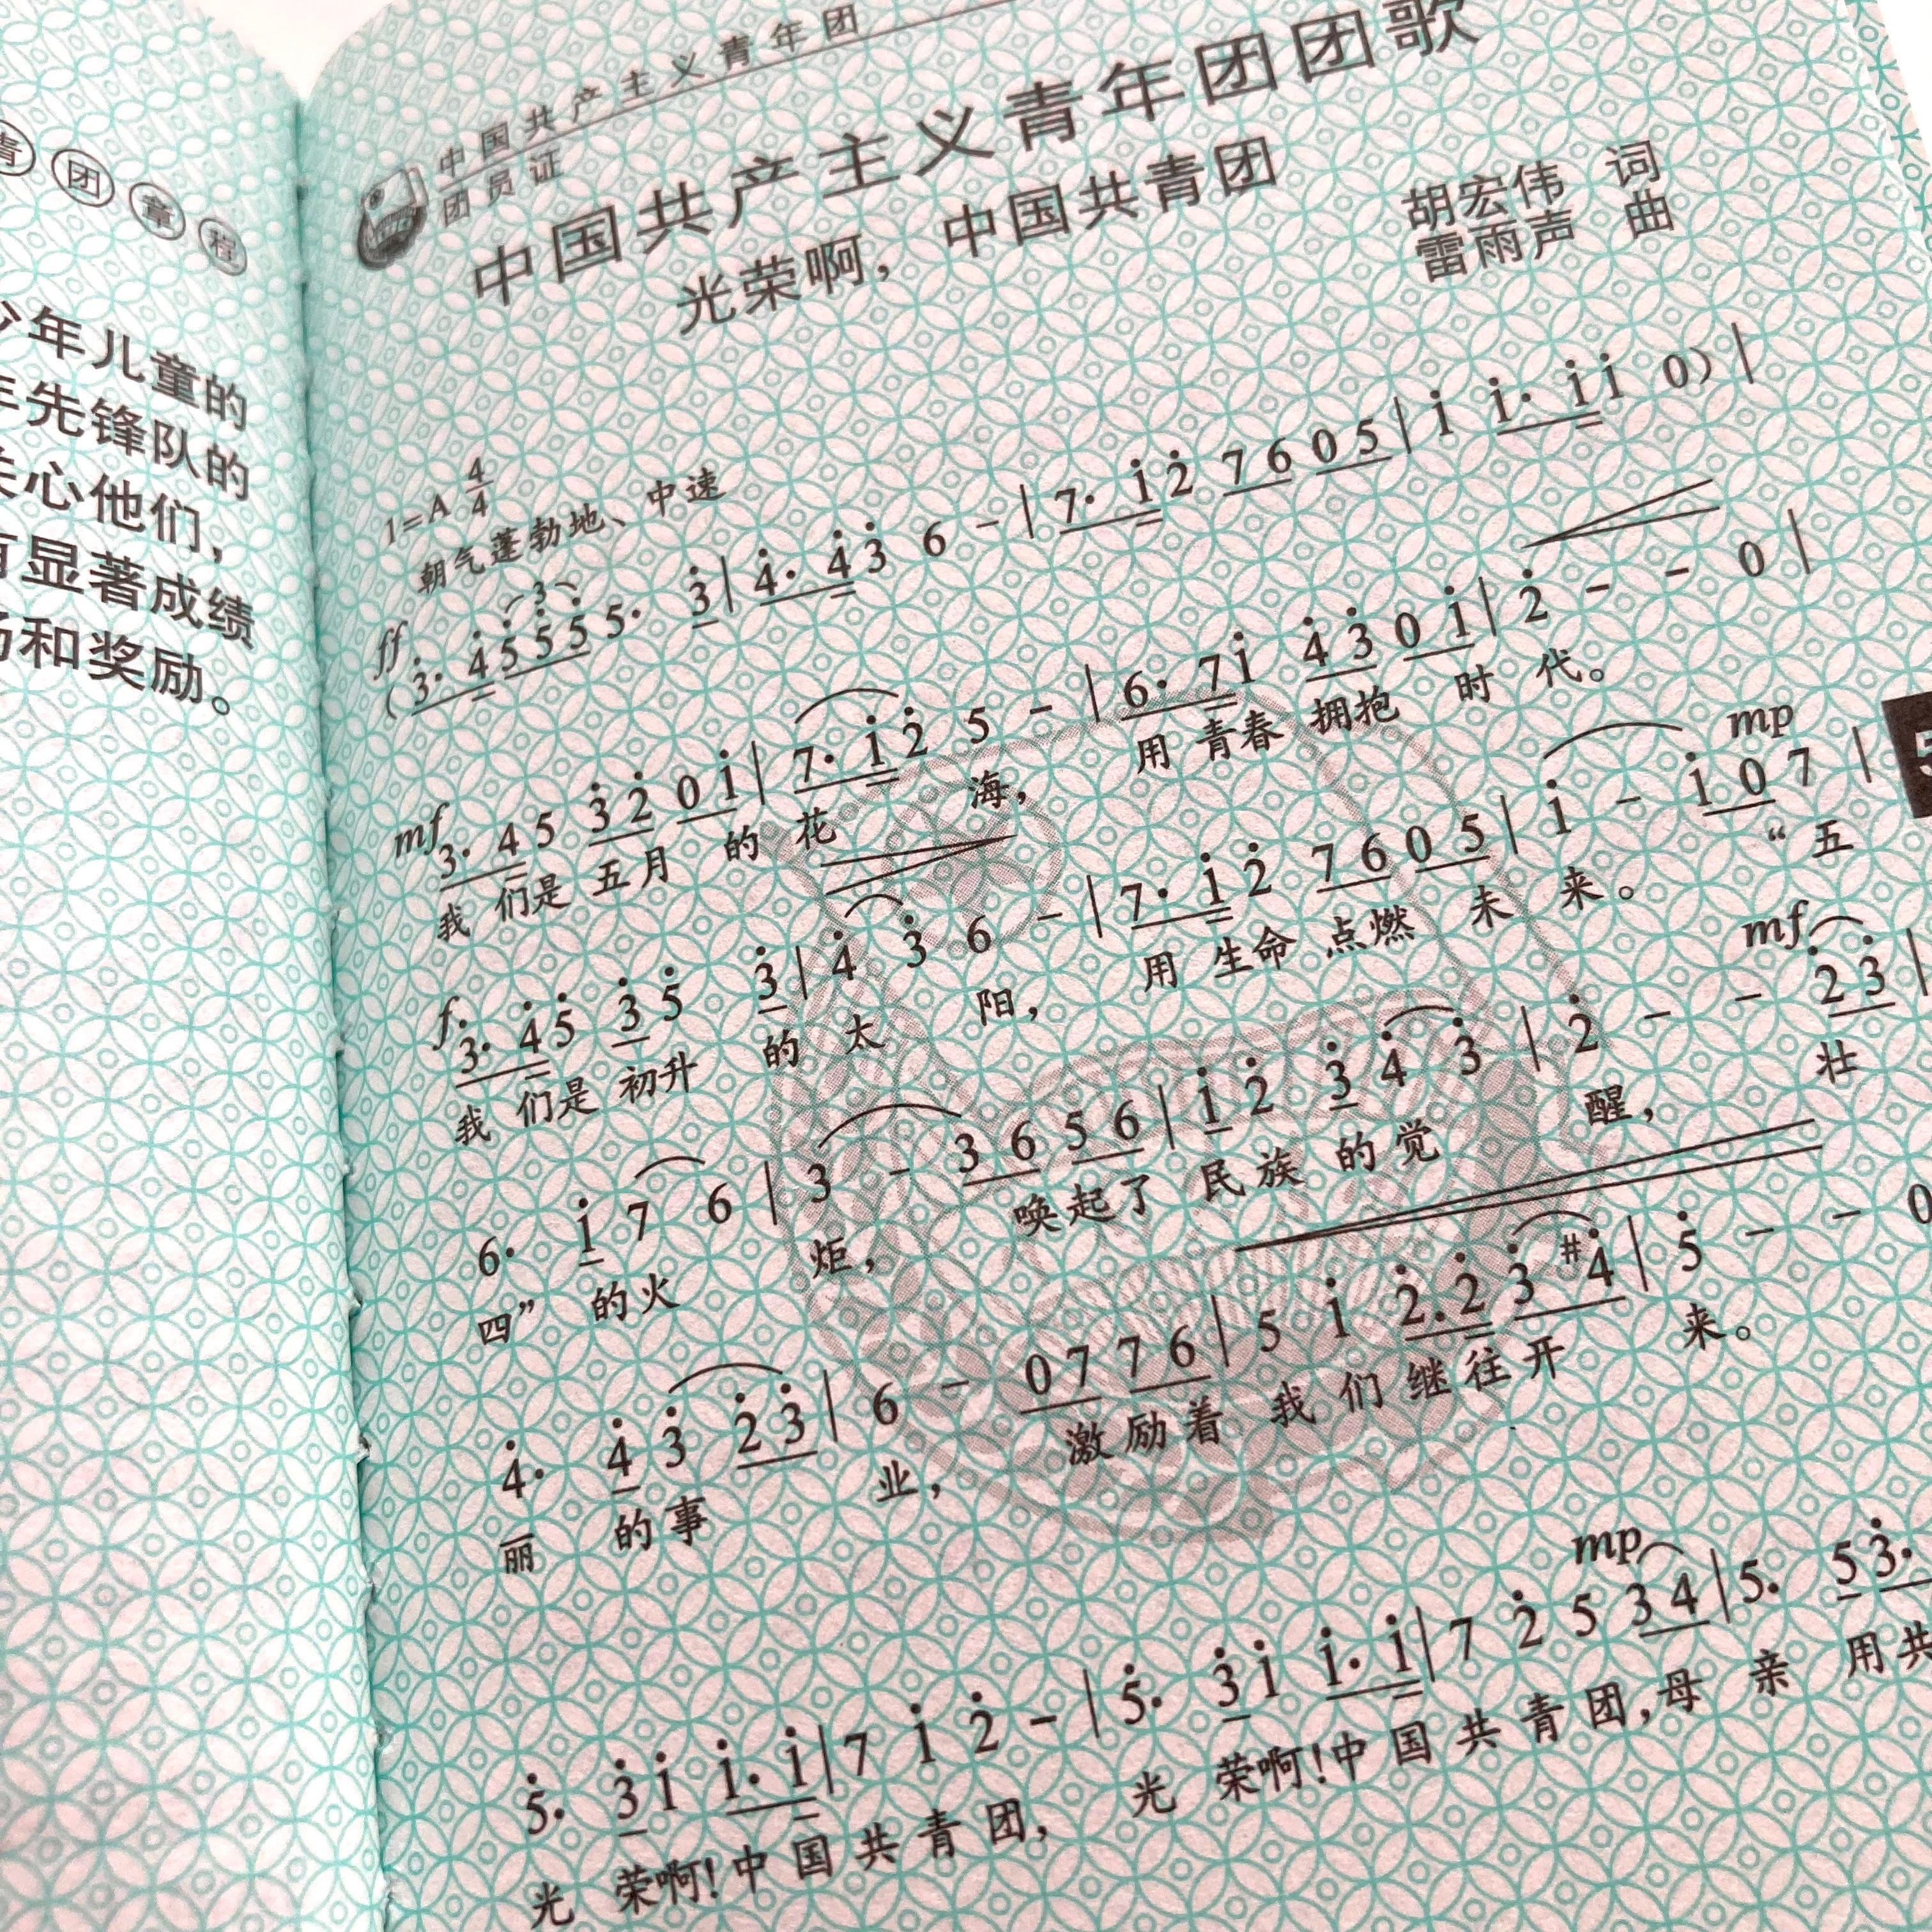 青团章程
少年儿童的
年先锋队的
关心他们，
有显著成绩
扬和奖励。
中国共产主义青年团
团员证
中国共产主义青年团团歌
光荣啊，中国共青团
胡宏伟 词
雷雨声 曲
1=A 4/4
朝气蓬勃地、中速
ff
3
(3̇· 4̇ 5̇ 5̇ 5̇ 5· 3̇ | 4̇· 4̇ 3̇ 6 - | 7· 1̇ 2̇ 7 6 0 5 | 1̇ 1̇· 1̇ 1̇ 0) |
mf
3· 4 5 3̇ 2̇ 0 1̇ | 7· 1̇ 2̇ 5 - | 6· 7 1̇ 4̇ 3̇ 0 1̇ | 2̇ - - 0 |
我们是五月的花海，用青春拥抱时代。
f mp
3̇· 4̇ 5̇ 3̇ 5̇ 3̇ | 4̇ 3̇ 6 - | 7· 1̇ 2̇ 7 6 0 5 | 1̇ - 1̇ 0 7 |
我们是初升的太阳，用生命点燃未来。“五
mf
6· 1̇ 7 6 | 3 - 3 6 5 6 | 1̇ 2̇ 3̇ 4̇ 3̇ | 2̇ - - 2̇ 3̇ |
四”的火炬，唤起了民族的觉醒，壮
4̇· 4̇ 3̇ 2̇ 3̇ | 6 - 0 7 7 6 | 5 1̇ 2̇. 2̇ 3̇ #4̇ | 5̇ - - 0
丽的事业，激励着我们继往开来。
mp
5̇· 3̇ 1̇ 1̇· 1̇ | 7 1̇ 2̇ - | 5̇· 3̇ 1̇ 1̇· 1̇ | 7 2̇ 5 3 4 | 5· 5 3̇·
光荣啊！中国共青团，光荣啊！中国共青团，母亲用共